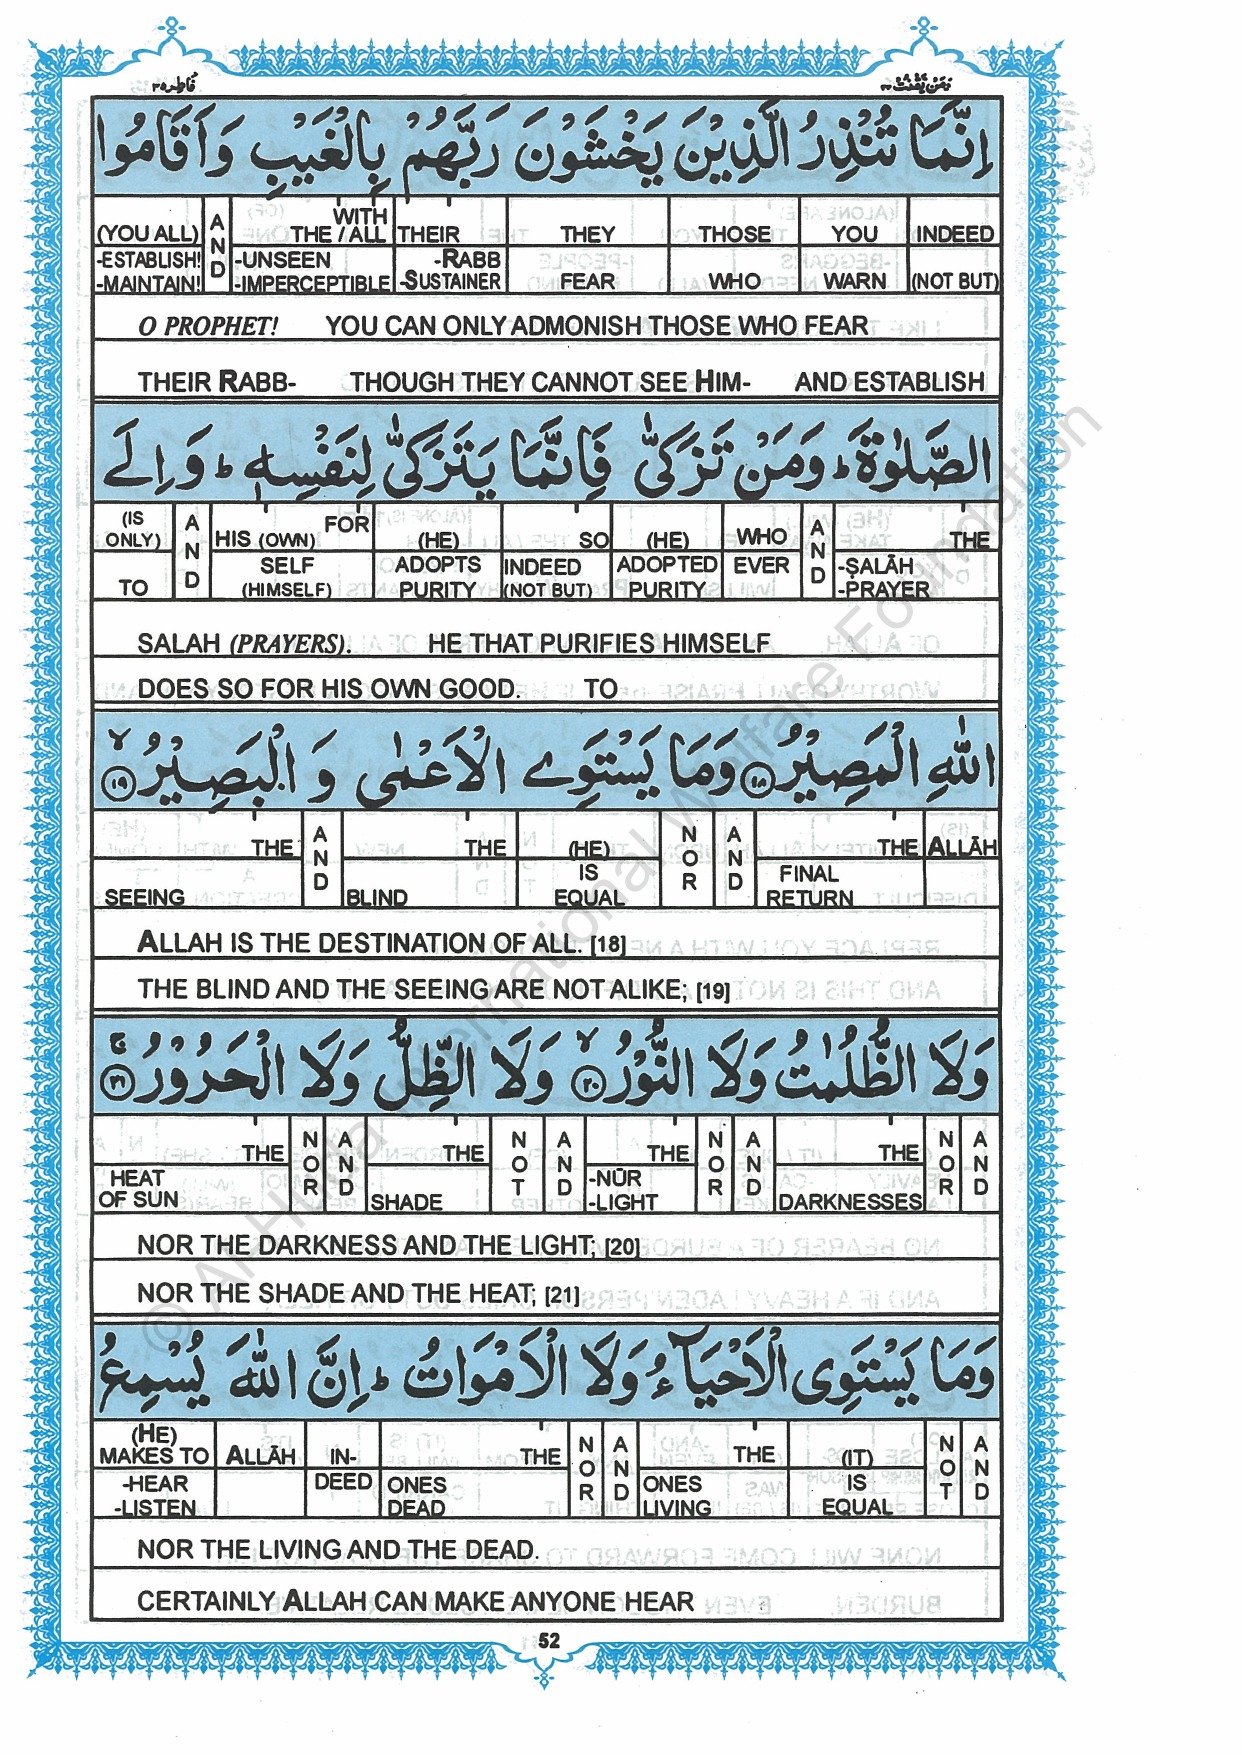 فاطر ۳۵
ومن یقنت ۲۲
اِنَّمَا تُنْذِرُ الَّذِيْنَ يَخْشَوْنَ رَبَّهُمْ بِالْغَيْبِ وَاَقَامُوا
(YOU ALL) -ESTABLISH! -MAINTAIN! AND WITH THE / ALL -UNSEEN -IMPERCEPTIBLE THEIR -RABB -SUSTAINER THEY FEAR THOSE WHO YOU WARN INDEED (NOT BUT)
O PROPHET! YOU CAN ONLY ADMONISH THOSE WHO FEAR
THEIR RABB- THOUGH THEY CANNOT SEE HIM- AND ESTABLISH
الصَّلٰوةَ ؕ وَمَنْ تَزَكّٰى فَاِنَّمَا يَتَزَكّٰى لِنَفْسِهٖ ؕ وَاِلَى
(IS ONLY) TO AND FOR HIS (OWN) SELF (HIMSELF) (HE) ADOPTS PURITY SO INDEED (NOT BUT) (HE) ADOPTED PURITY WHO EVER AND THE -ṢALĀH -PRAYER
SALAH (PRAYERS). HE THAT PURIFIES HIMSELF
DOES SO FOR HIS OWN GOOD. TO
اللّٰهِ الْمَصِيْرُ ۱۸ وَمَا يَسْتَوِى الْاَعْمٰى وَ الْبَصِيْرُ ۙ ۱۹
THE SEEING AND THE BLIND (HE) IS EQUAL NOR AND THE FINAL RETURN ALLĀH
ALLAH IS THE DESTINATION OF ALL. [18]
THE BLIND AND THE SEEING ARE NOT ALIKE; [19]
وَلَا الظُّلُمٰتُ وَلَا النُّوْرُ ۙ ۲۰ وَلَا الظِّلُّ وَلَا الْحَرُوْرُ ۚ ۲۱
THE HEAT OF SUN NOR AND THE SHADE NOT AND THE -NŪR -LIGHT NOR AND THE DARKNESSES NOR AND
NOR THE DARKNESS AND THE LIGHT; [20]
NOR THE SHADE AND THE HEAT; [21]
وَمَا يَسْتَوِى الْاَحْيَآءُ وَلَا الْاَمْوَاتُ ؕ اِنَّ اللّٰهَ يُسْمِعُ
(HE) MAKES TO -HEAR -LISTEN ALLĀH IN-DEED THE ONES DEAD NOR AND THE ONES LIVING (IT) IS EQUAL NOT AND
NOR THE LIVING AND THE DEAD.
CERTAINLY ALLAH CAN MAKE ANYONE HEAR
52